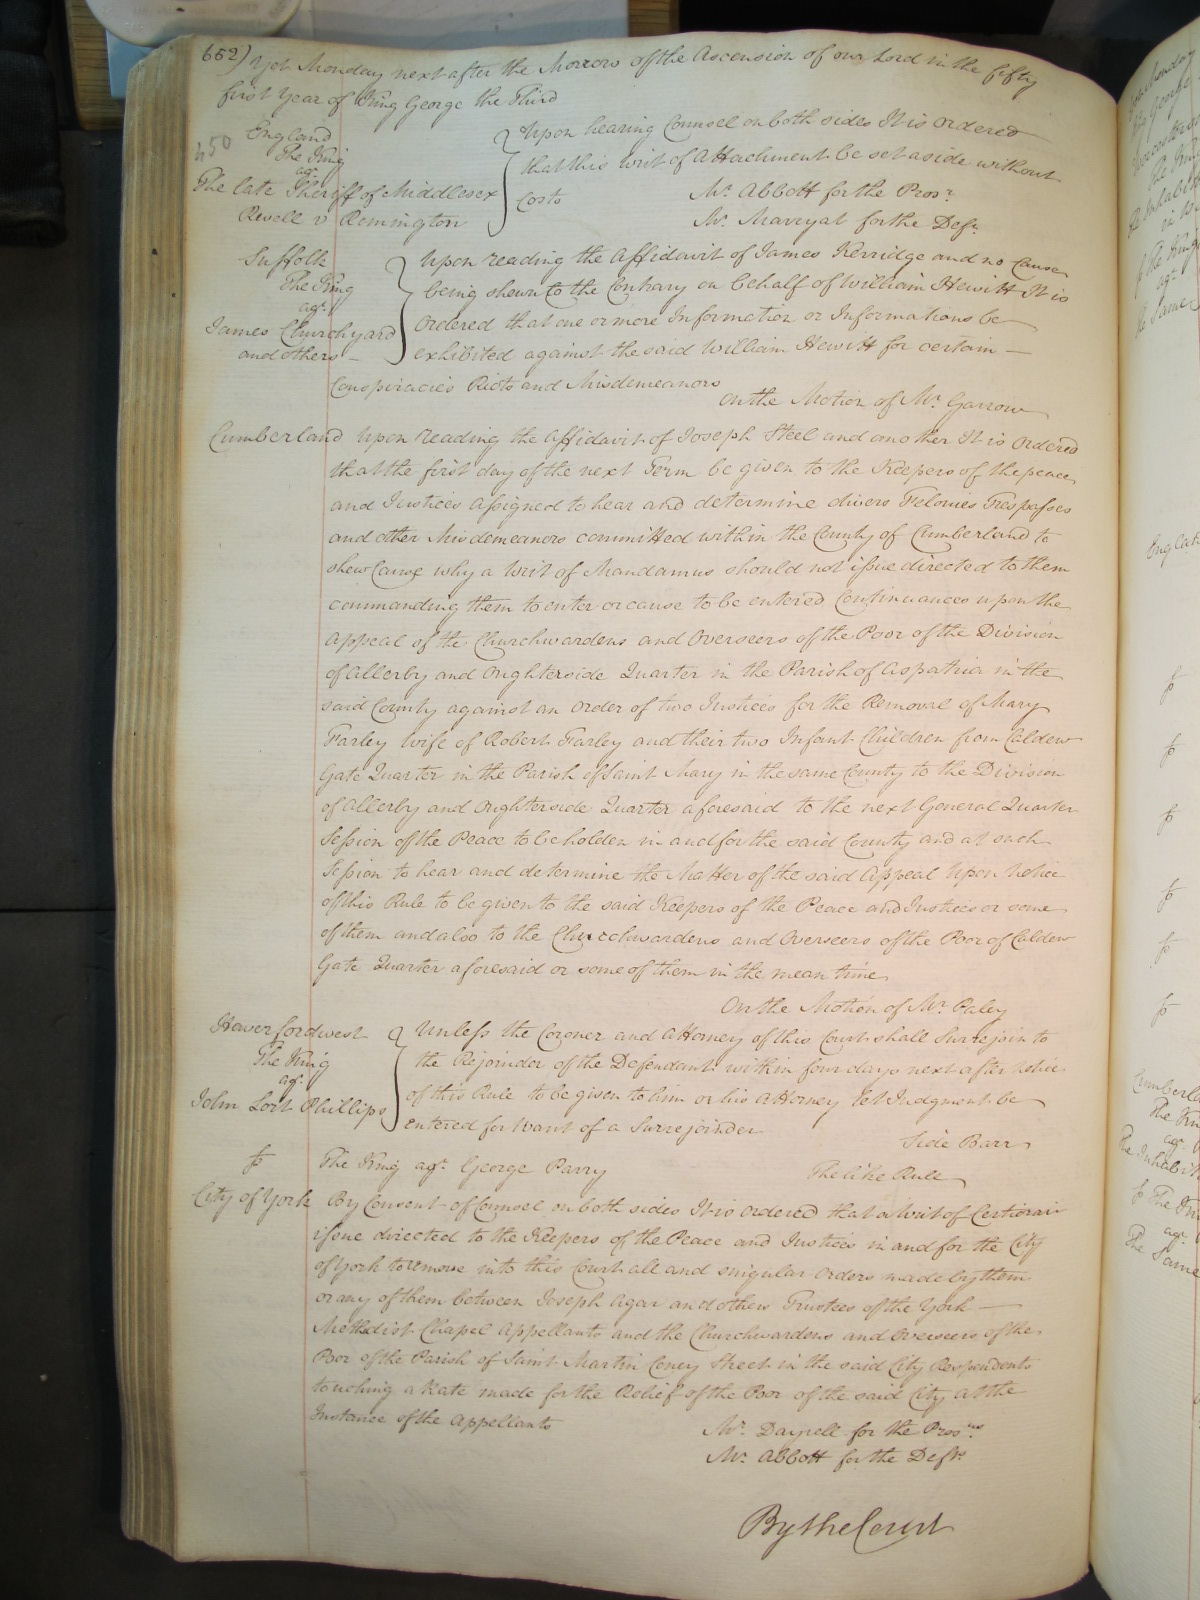 652) Yet Monday next after the Morrow of the Ascension of our Lord in the fifty
first Year of King George the Third
450
England
The King
agt.
The late Sheriff of Middlesex
Revell v Remington
Upon hearing Counsel on both sides It is Ordered
that this Writ of Attachment be set aside without
Costs
Mr. Abbott for the Prosr.
Mr. Marryat for the Deft.
Suffolk
The King
agt.
James Churchyard
and others
Upon reading the Affidavit of James Kerridge and no Cause
being shewn to the Contrary on behalf of William Hewitt It is
Ordered that one or more Information or Informations be
exhibited against the said William Hewitt for certain —
Conspiracies Riots and Misdemeanors
On the Motion of Mr. Garrow
Cumberland Upon reading the Affidavit of Joseph Steel and another It is Ordered
that the first day of the next Term be given to the Keepers of the peace
and Justices Assigned to hear and determine divers Felonies Trespasses
and other Misdemeanors committed within the County of Cumberland to
shew Cause why a Writ of Mandamus should not issue directed to them
commanding them to enter or cause to be entered Continuances upon the
Appeal of the Churchwardens and Overseers of the Poor of the Division
of Allerby and Oughterside Quarter in the Parish of Aspatria in the
said County against an Order of two Justices for the Removal of Mary
Farley Wife of Robert Farley and their two Infant Children from Caldew
Gate Quarter in the Parish of Saint Mary in the same County to the Division
of Allerby and Oughterside Quarter aforesaid to the next General Quarter
Session of the Peace to be holden in and for the said County and at such
Session to hear and determine the Matter of the said Appeal Upon Notice
of this Rule to be given to the said Keepers of the Peace and Justices or some
of them and also to the Churchwardens and Overseers of the Poor of Caldew
Gate Quarter aforesaid or some of them in the mean time
On the Motion of Mr. Paley
Haverfordwest
The King
agt.
John Lort Phillips
Unless the Coroner and Attorney of this Court shall Surrejoin to
the Rejoinder of the Defendant within four days next after Notice
of this Rule to be given to him or his Attorney let Judgment be
entered for want of a Surrejoinder
Side Barr
The King agt. George Parry
The like Rule
City of York By Consent of Counsel on both sides It is Ordered that a Writ of Certiorari
issue directed to the Keepers of the Peace and Justices in and for the City
of York to remove into this Court all and singular Orders made by them
or any of them between Joseph Agar and others Trustees of the York —
Methodist Chapel Appellants and the Churchwardens and Overseers of the
Poor of the Parish of Saint Martin Coney Street in the said City Respondents
touching a Rate made for the Relief of the Poor of the said City At the
Instance of the Appellants
Mr. Dayrell for the Prosrs.
Mr. Abbott for the Defts.
By the Court